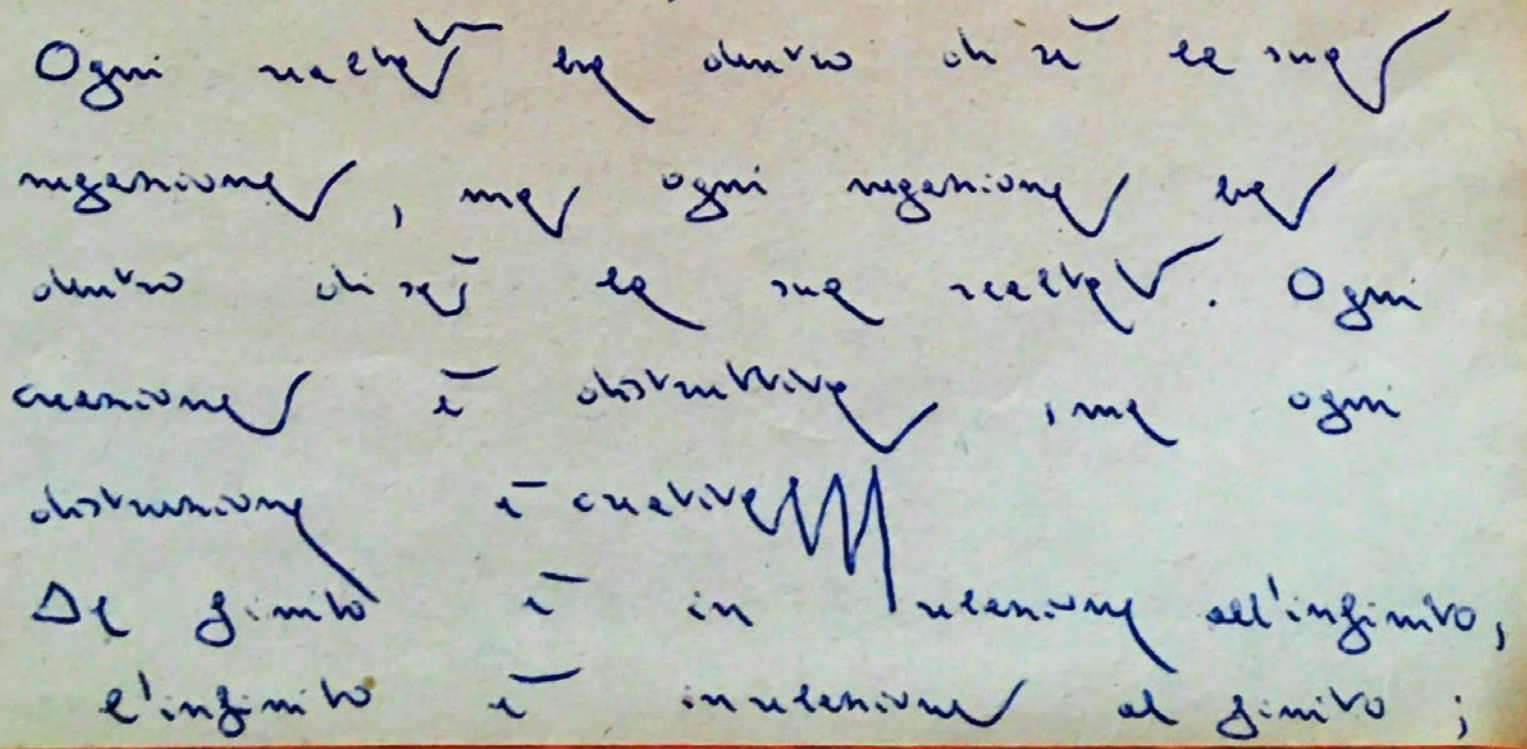 Ogni realtà ha dentro di sé la sua
negazione, ma ogni negazione ha
dentro di sé la sua realtà. Ogni
creazione è distruttiva, ma ogni
distruzione è creativa
Il finito è in relazione all'infinito,
l'infinito è in relazione al finito;